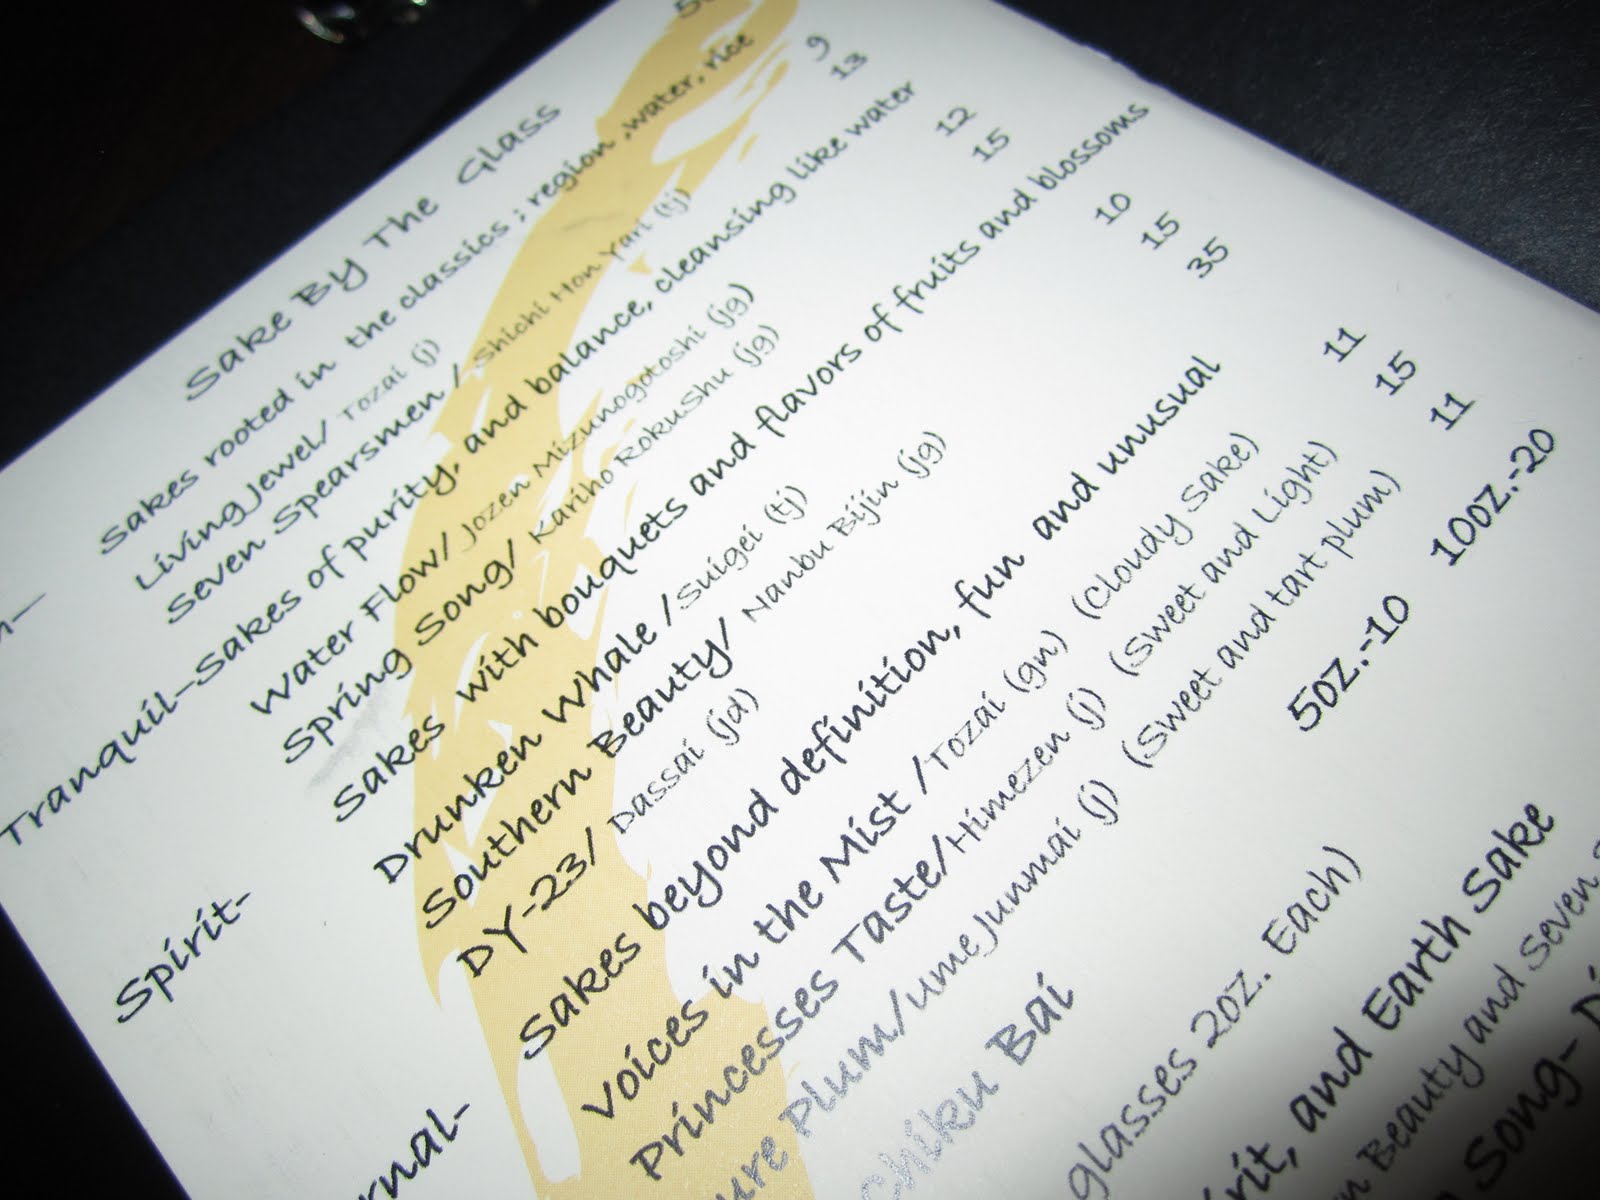 Sake By The Glass
Sakes rooted in the classics ; region ,water, rice
Living Jewel/ Tozai (j) 9
Seven Spearsmen / Shichi Hon Yari (tj) 13
Tranquil-Sakes of purity, and balance, cleansing like water
Water Flow/ Jozen Mizunogotoshi (jg) 12
Spring Song/ Kariho RokuShu (jg) 15
Spirit- Sakes with bouquets and flavors of fruits and blossoms
Drunken Whale /Suigei (tj) 10
Southern Beauty/ Nanbu Bijin (jg) 15
DY-23/ Dassai (jd) 35
Sakes beyond definition, fun and unusual
Voices in the Mist /Tozai (gn) (Cloudy Sake) 11
Princesses Taste/Himezen (j) (Sweet and Light) 15
Plum/UmeJunmai (j) (Sweet and tart plum) 11
Chiku Bai 5oz.-10 10oz.-20
glasses 2oz. Each)
and Earth Sake
Beauty and Seven
Song-